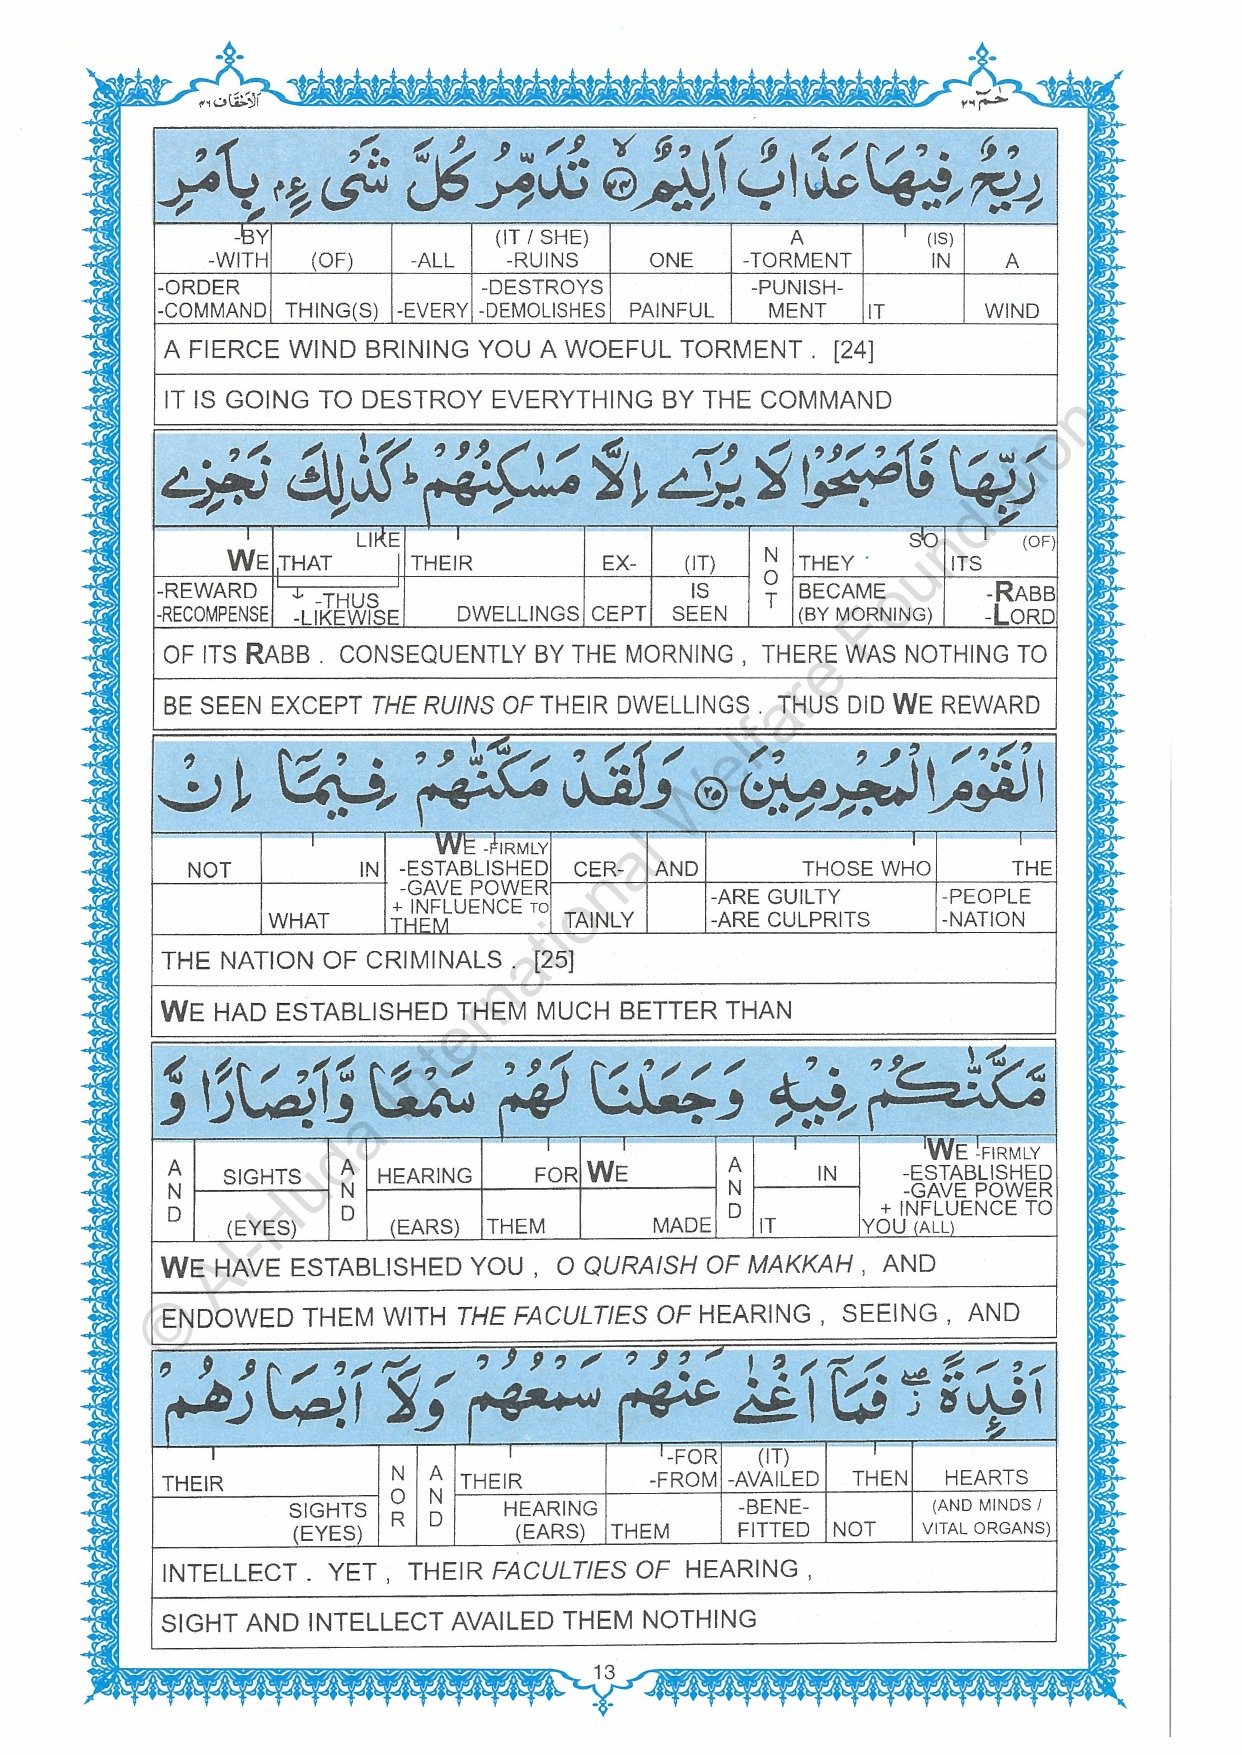 اَلْاَحْقَاف ٤٦
حٰمٓ ٢٦
رِيْحٌ فِيْهَا عَذَابٌ اَلِيْمٌ ۙ﴿٢٤﴾ تُدَمِّرُ كُلَّ شَىْءٍۭ بِاَمْرِ
-BY -WITH (OF) -ALL (IT / SHE) -RUINS ONE A -TORMENT (IS) IN A
-ORDER -COMMAND THING(S) -EVERY -DESTROYS -DEMOLISHES PAINFUL -PUNISH- MENT IT WIND
A FIERCE WIND BRINING YOU A WOEFUL TORMENT . [24]
IT IS GOING TO DESTROY EVERYTHING BY THE COMMAND
رَبِّهَا فَاَصْبَحُوْا لَا يُرٰٓى اِلَّا مَسٰكِنُهُمْ ؕ كَذٰلِكَ نَجْزِى
WE LIKE THAT THEIR EX- (IT) NOT THEY SO ITS (OF)
-REWARD -RECOMPENSE -THUS -LIKEWISE DWELLINGS CEPT IS SEEN BECAME (BY MORNING) -RABB -LORD
OF ITS RABB . CONSEQUENTLY BY THE MORNING , THERE WAS NOTHING TO
BE SEEN EXCEPT THE RUINS OF THEIR DWELLINGS . THUS DID WE REWARD
الْقَوْمَ الْمُجْرِمِيْنَ ﴿٢٥﴾ وَلَقَدْ مَكَّنّٰهُمْ فِيْمَآ اِنْ
NOT IN WE -FIRMLY -ESTABLISHED CER- AND THOSE WHO THE
WHAT -GAVE POWER + INFLUENCE TO THEM TAINLY -ARE GUILTY -ARE CULPRITS -PEOPLE -NATION
THE NATION OF CRIMINALS . [25]
WE HAD ESTABLISHED THEM MUCH BETTER THAN
مَّكَّنّٰكُمْ فِيْهِ وَجَعَلْنَا لَهُمْ سَمْعًا وَّاَبْصَارًا وَّ
AND SIGHTS AND HEARING FOR WE AND IN WE -FIRMLY -ESTABLISHED
(EYES) (EARS) THEM MADE IT -GAVE POWER + INFLUENCE TO YOU (ALL)
WE HAVE ESTABLISHED YOU , O QURAISH OF MAKKAH , AND
ENDOWED THEM WITH THE FACULTIES OF HEARING , SEEING , AND
اَفْـِٕدَةً ۖ فَمَآ اَغْنٰى عَنْهُمْ سَمْعُهُمْ وَلَآ اَبْصَارُهُمْ
THEIR NOR AND THEIR -FOR -FROM (IT) -AVAILED THEN HEARTS
SIGHTS (EYES) HEARING (EARS) THEM -BENE- FITTED NOT (AND MINDS / VITAL ORGANS)
INTELLECT . YET , THEIR FACULTIES OF HEARING ,
SIGHT AND INTELLECT AVAILED THEM NOTHING
13
© Al-Huda International Welfare Foundation